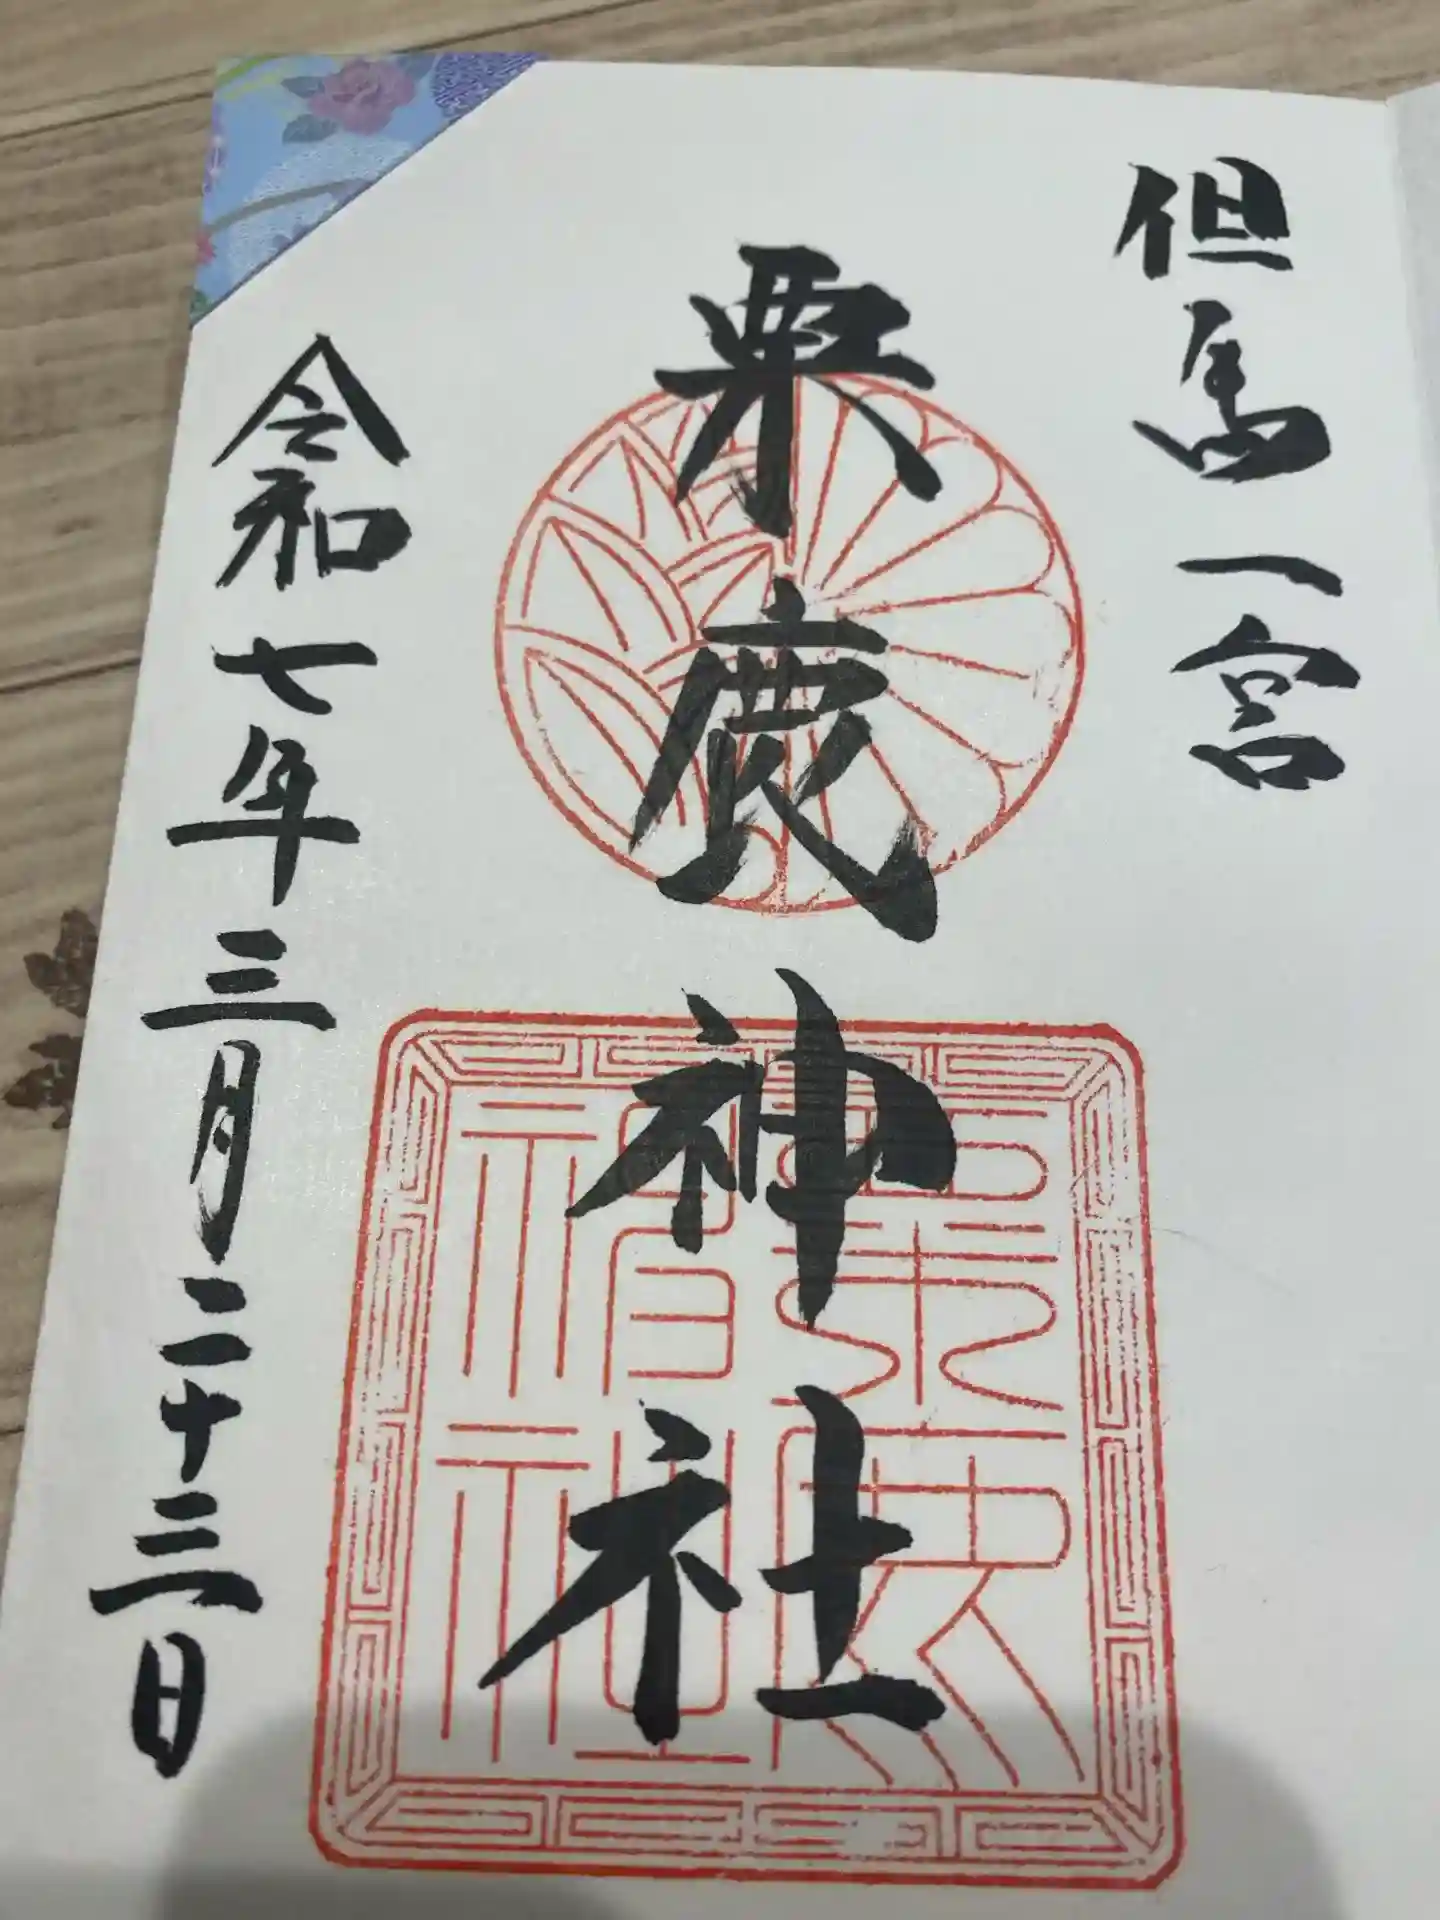 但馬一宮
粟鹿神社
令和七年三月二十三日
粟鹿神社